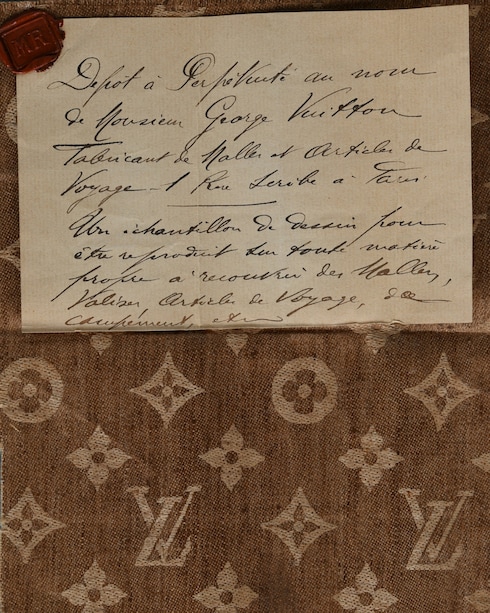 MR
Depôt à Perpétuité au nom
de Monsieur George Vuitton
Fabricant de Malles et Articles de
Voyage - 1 Rue Scribe à Paris
Un échantillon de dessin pour
être reproduit sur toute matière
propre à recouvrir des Malles,
Valises Articles de Voyage, de
campement, etc
LV LV